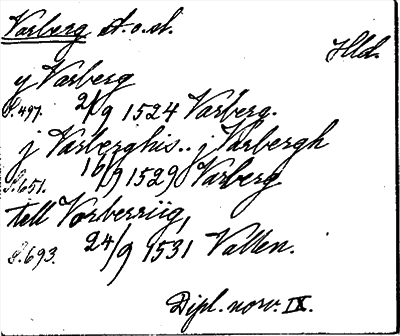 Varberg st. o. sl.
Hld.
y Varberg
S. 497. 2/9 1524 Varberg.
j Varberghis.. j Varbergh
S. 651. 16/9 1529 Varberg
till Vorberriig,
S. 693. 24/9 1531 Vallen.
Dipl. norv. IX.